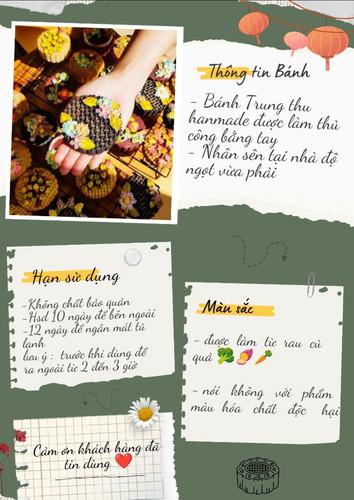 Thông tin Bánh
- Bánh Trung thu
hanmade được làm thủ
công bằng tay
- Nhân sên tại nhà độ
ngọt vừa phải
Hạn sử dụng
-Không chất bảo quản
-Hsd 10 ngày để bên ngoài
-12 ngày để ngăn mát tủ
lạnh
lưu ý : trước khi dùng để
ra ngoài từ 2 đến 3 giờ
Màu sắc
- được làm từ rau củ
quả 🥦🍠🥕
- nói không với phẩm
màu hóa chất độc hại
Cảm ơn khách hàng đã
tin dùng ❤️